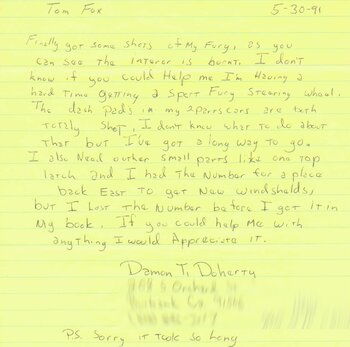 Tom Fox 5-30-91
Finally got some shots of My Fury, as you
can see the Interor is burnt. I don't
know if you could Help me I'm Having a
hard Time Getting a Sport Fury Steering Wheel.
The dash pads in my 2 parts cars are both
Totally Shot, I don't know what to do about
That but I've got a long way to go.
I also Need outher small parts like one Top
latch and I had The Number for a place
back East To get New Windshelds,
but I Lost The Number before I got it in
My book. If you could help Me with
anything I would Appreciate it.
Damon T. Doherty
P.S. Sorry it Took So Long